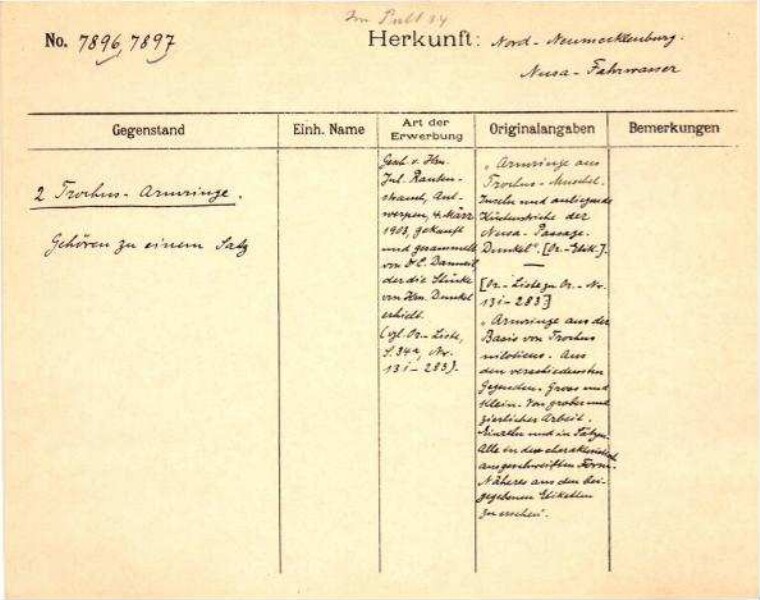 Im Pult 14
No. 7896, 7897
Herkunft: Nord-Neumecklenburg.
Nusa-Fahrwasser
Gegenstand
Einh. Name
Art der
Erwerbung
Originalangaben
Bemerkungen
2 Trochus-Armringe.
Gehören zu einem Satz
Gesch. v. Hrn.
Jul. Rauten-
strauch, Ant-
werpen, 4. März
1903, gekauft
und gesammelt
von
der die Stücke
von Hrn. Dunkel
erhielt.
(vgl. Or.-Liste,
S. 34a, Nr.
13i-283).
„Armringe aus
Trochus-Muschel.
Inseln und anliegende
Küstenstriche der
Nusa-Passage.
Dunkel". [Or.-Etik.].
[Or.-Liste zu Or.-Nr.
13i-283]
„Armringe aus der
Basis von Trochus
niloticus. Aus
den verschiedensten
Gegenden. Gross und
klein. Von grober und
zierlicher Arbeit.
Einzeln und in Sätzen.
Alle in der charakteristisch
ausgeschweiften Form.
Näheres aus den bei-
gegebenen Etiketten
zu ersehen".